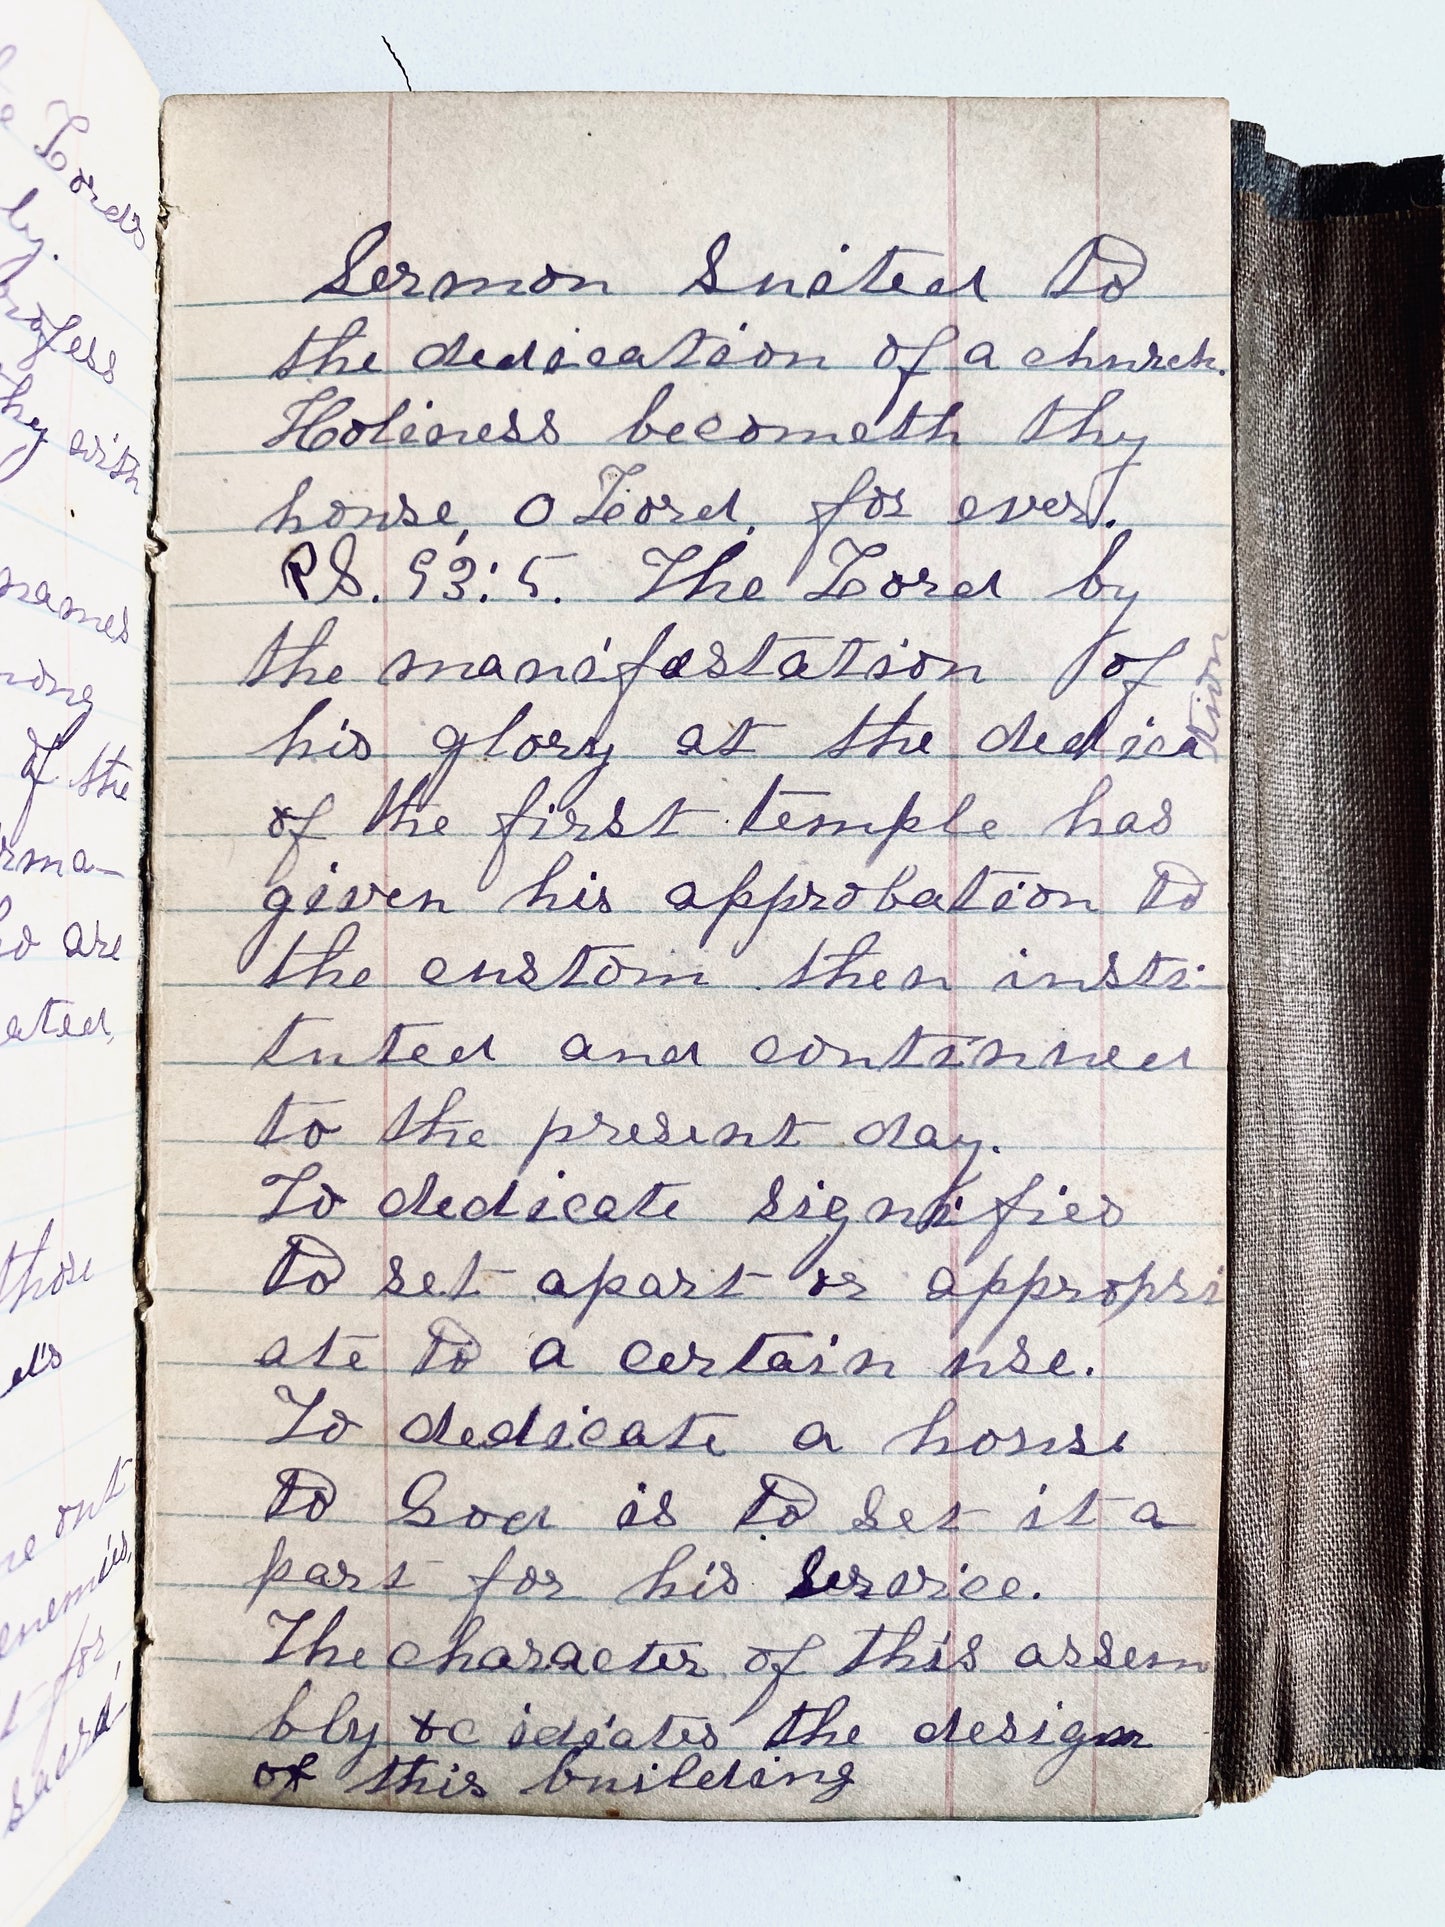 Lords
by.
rofess
hy with
names
mong
of the
rma-
ho are
ated,
those
ne out
enemies,
t for
sacrd
Sermon Suited to
the dedication of a church.
Holiness becometh thy
house, O Lord, for ever.
PS. 93:5. The Lord by
the manifestation of
his glory at the dedication
of the first temple has
given his approbation to
the custom then insti-
tuted and continued
to the present day.
To dedicate signifies
to set apart or appropri
ate to a certain use.
To dedicate a house
to God is to set it a
part for his service.
The character of this assem
bly &c idiates the design
of this building